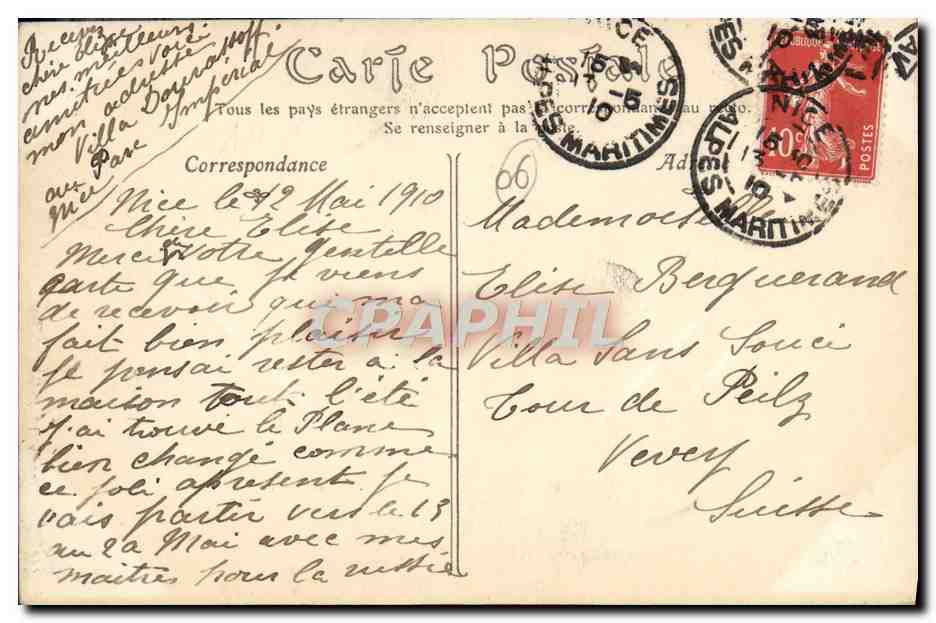 Carte Postale
Tous les pays étrangers n'acceptent pas la correspondance au recto.
Se renseigner à la poste.
Correspondance
66
Nice le 12 Mai 1910
Chère Elise
Merci votre gentille
carte que je viens
de recevoir qui ma
fait bien plaisir
je pensai rester à la
maison tout l'été
j'ai trouvé le Plane
bien changé comme
ce joli apresent je
vais partir vers le 13
au 20 Mai avec mes
maitres pour la russie
Recevez
chère Elise
mes meilleurs
amitiées voici
mon adresse
Villa
au Parc Impérial
Nice
Mademoiselle
Elise Berguerand
Villa Sans Souci
Tour de Peilz
Vevey
Suisse
NICE
ALPES MARITIMES
NICE
ALPES MARITIMES
10c
POSTES
CPAPHIL